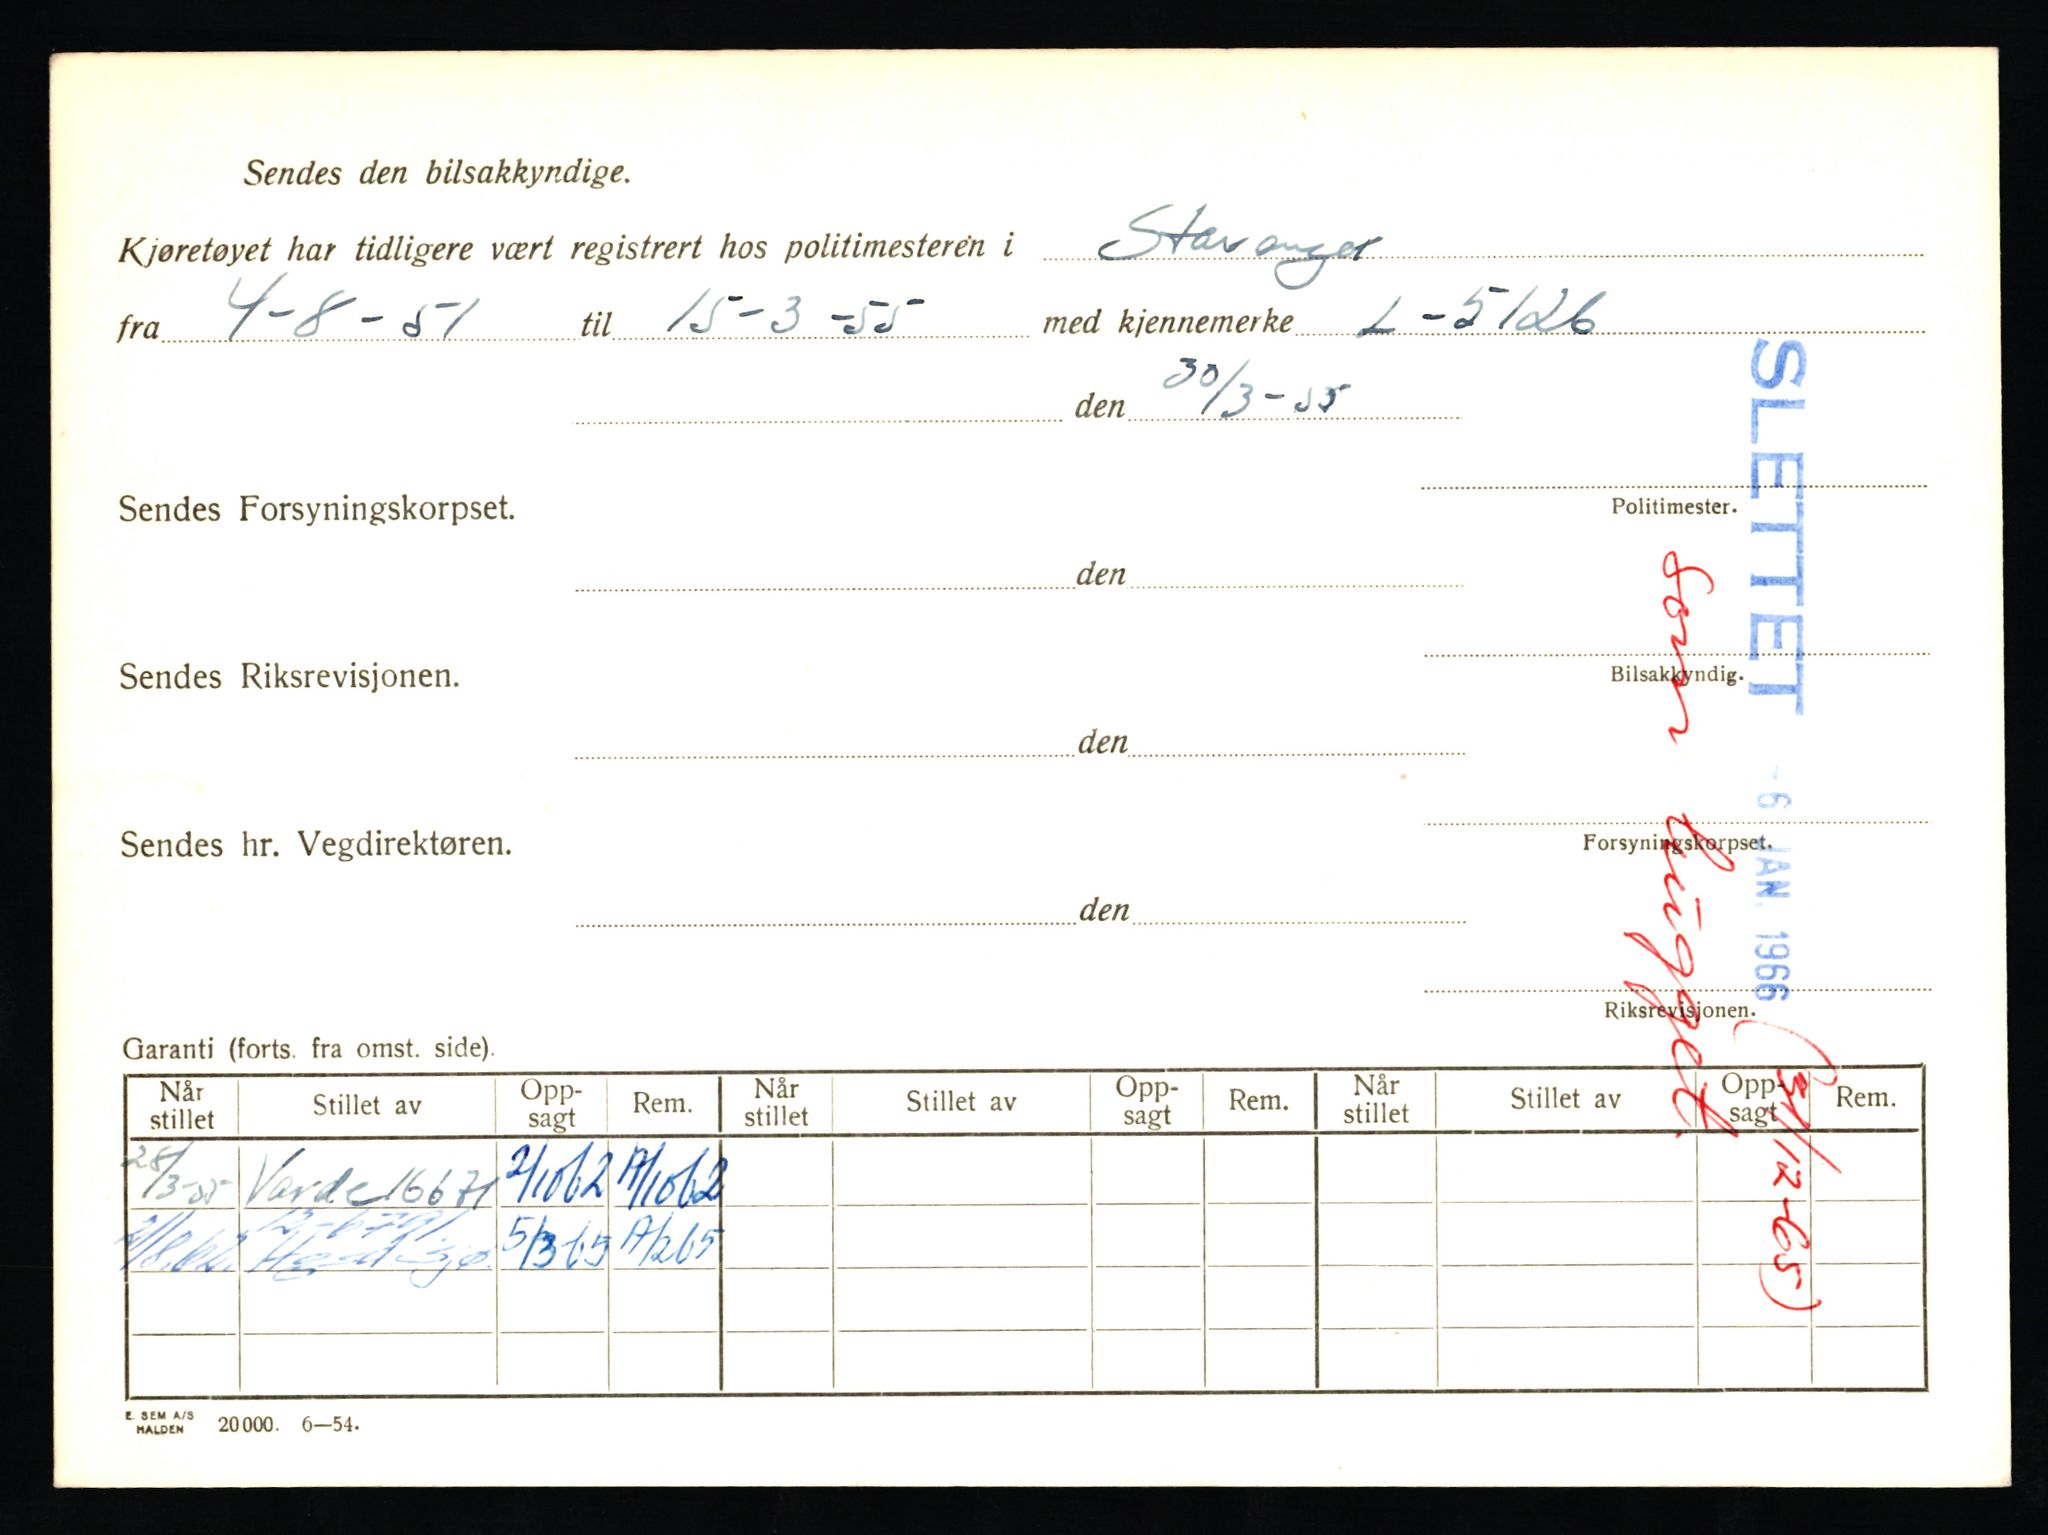 Sendes den bilsakkyndige.
Kjøretøyet har tidligere vært registrert hos politimesteren i Stavanger
fra 4-8-51 til 15-3-55 med kjennemerke L-5126
den 30/3-55
Politimester.
Sendes Forsyningskorpset.
den
Bilsakkyndig.
Sendes Riksrevisjonen.
den
Forsyningskorpset.
Sendes hr. Vegdirektøren.
den
Riksrevisjonen.
SLETTET -6 JAN. 1966
Som hugget. (31/12-65)
Garanti (forts. fra omst. side).
Når stillet Stillet av Opp-sagt Rem. Når stillet Stillet av Opp-sagt Rem. Når stillet Stillet av Opp-sagt Rem.
28/3-55 Varde 16671 2/1062 A/1062
5/3-65 A/265
E. SEM A/S
HALDEN 20000. 6—54.